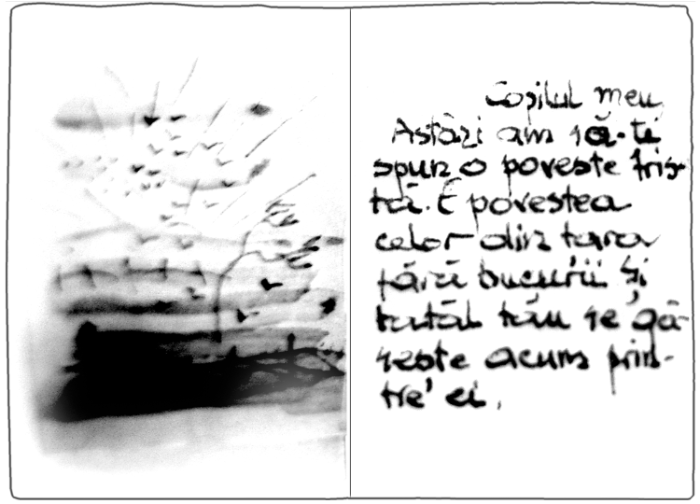 Copilul meu,
Astăzi am să-ți
spun o poveste tris-
tă. E povestea
celor din țara
fără bucurii și
tatăl tău se gă-
sește acum prin-
tre' ei.